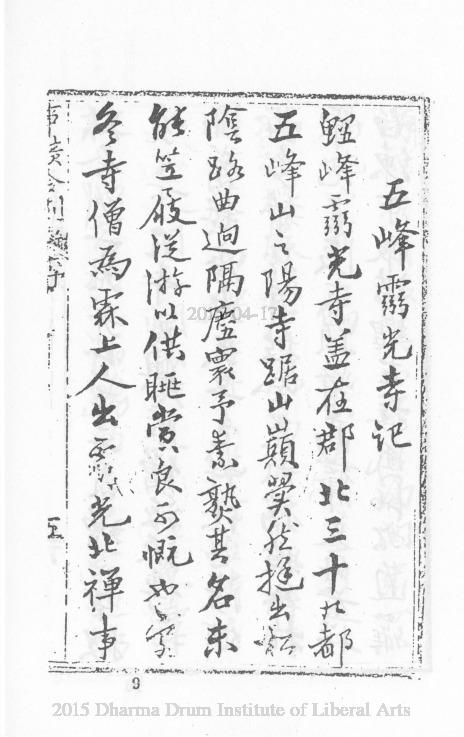 五峰靈光寺記
鯉峰靈光寺蓋在郡北三十九都
五峰山之陽寺踞山巔翼然挺出
陰路曲迴隔塵寰予素熟其名未
能笠屐從游以供眺賞良可慨也
冬寺僧為霖上人出靈光北禪事
五
9
2015-04-17
2015 Dharma Drum Institute of Liberal Arts